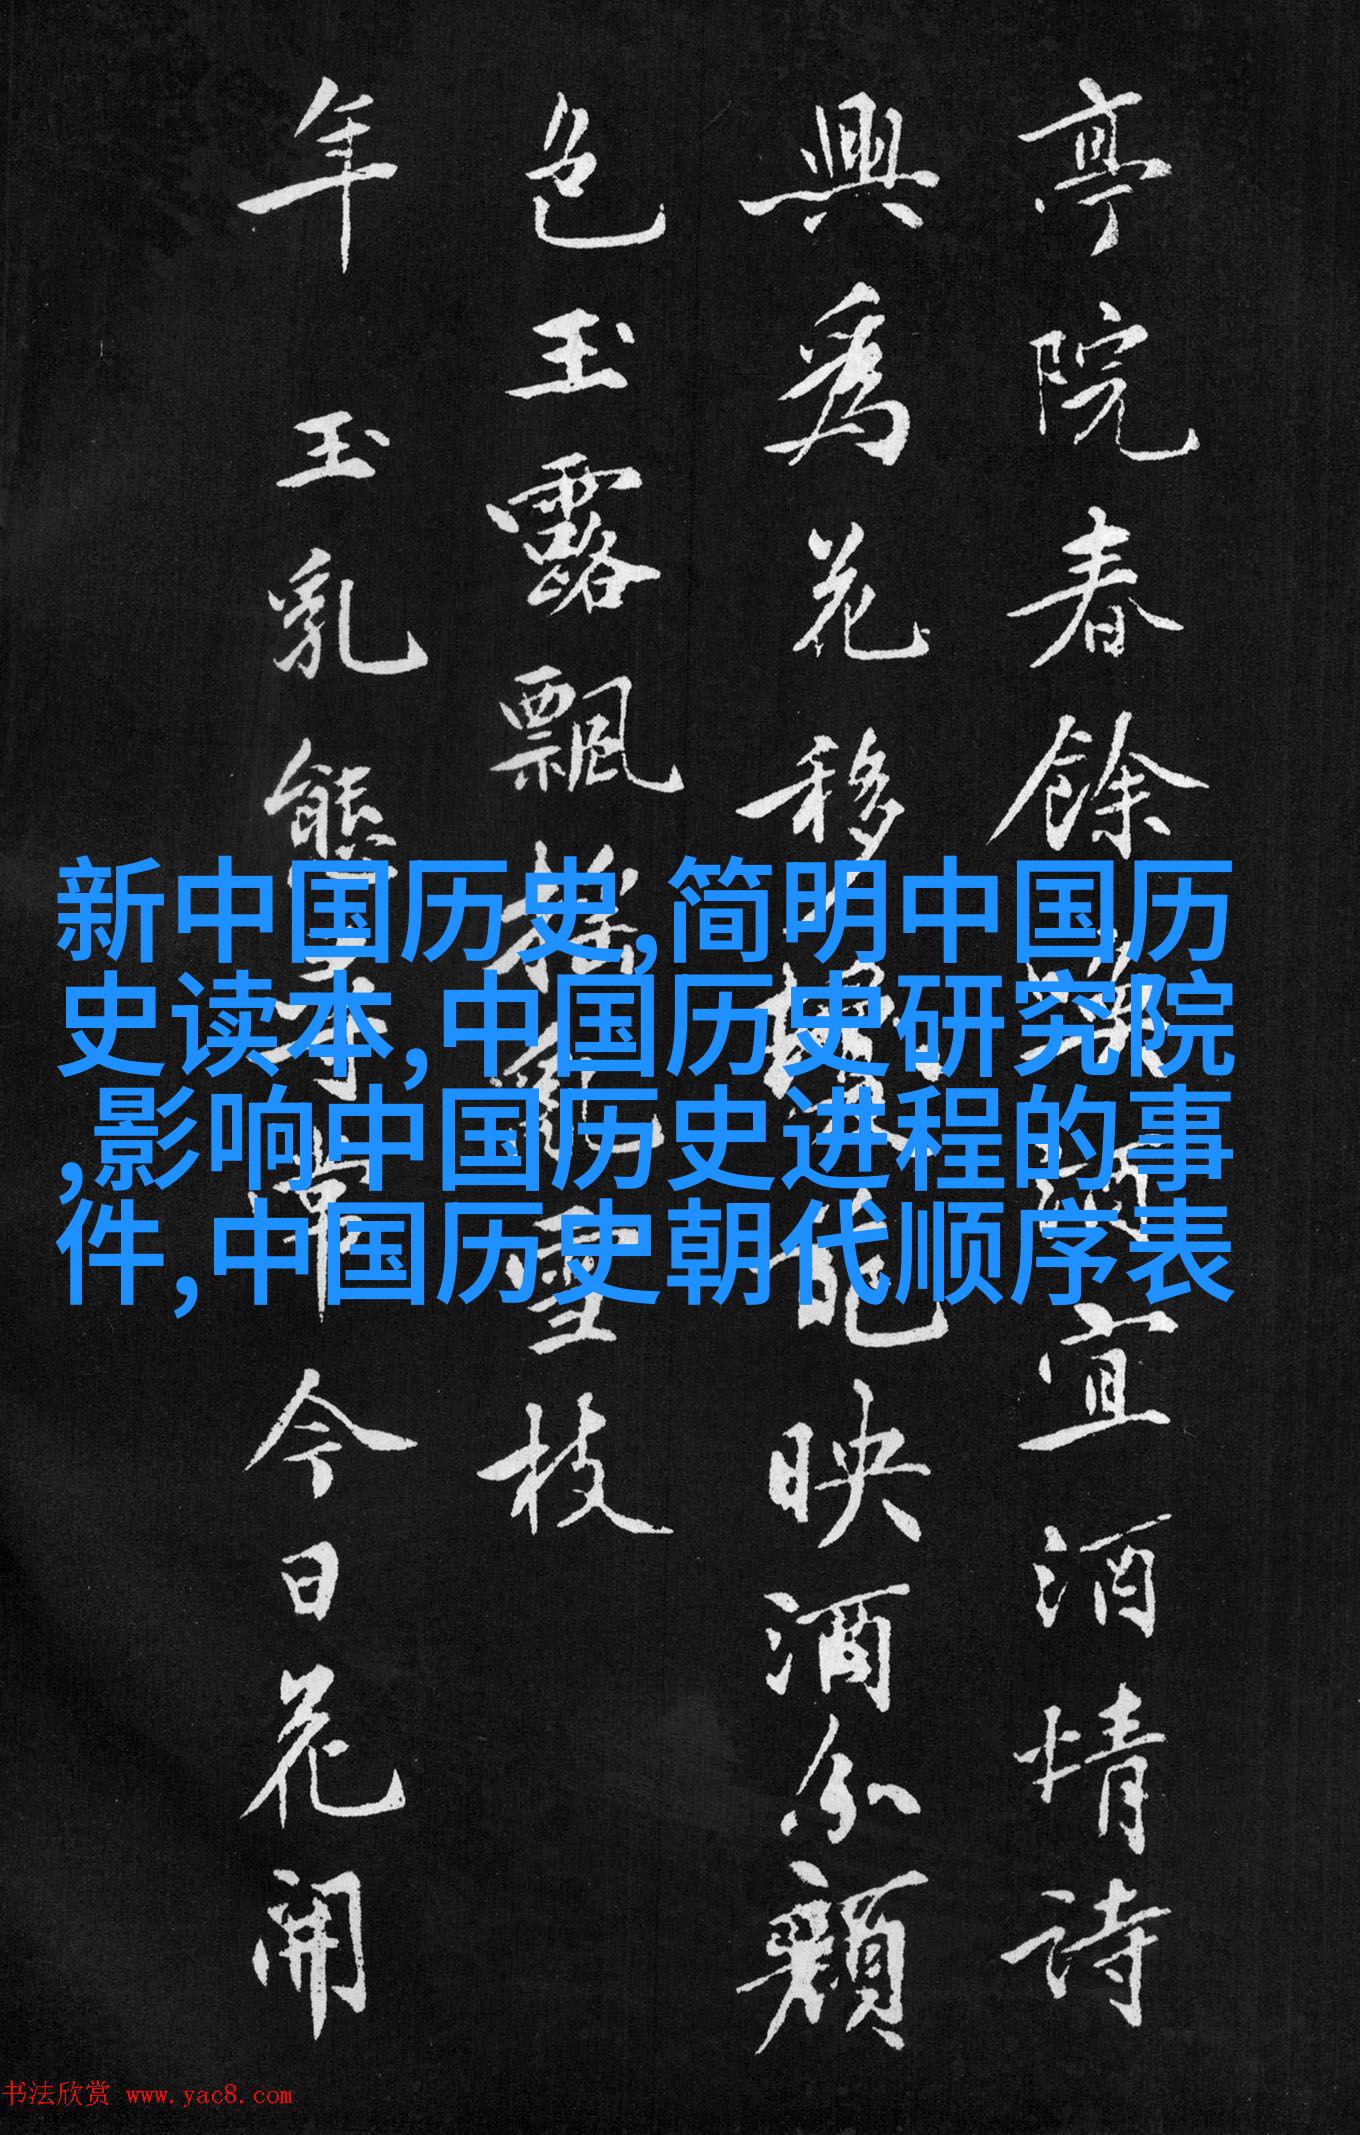 亭院春餘
宜酒情詩
興爲花移
映酒分顏
色玉露飄
雪枝
年 玉乳
今日花開
新中国历史,简明中国历
史读本,中国历史研究院
,影响中国历史进程的事
件,中国历史朝代顺序表
书法欣赏 www.yac8.com